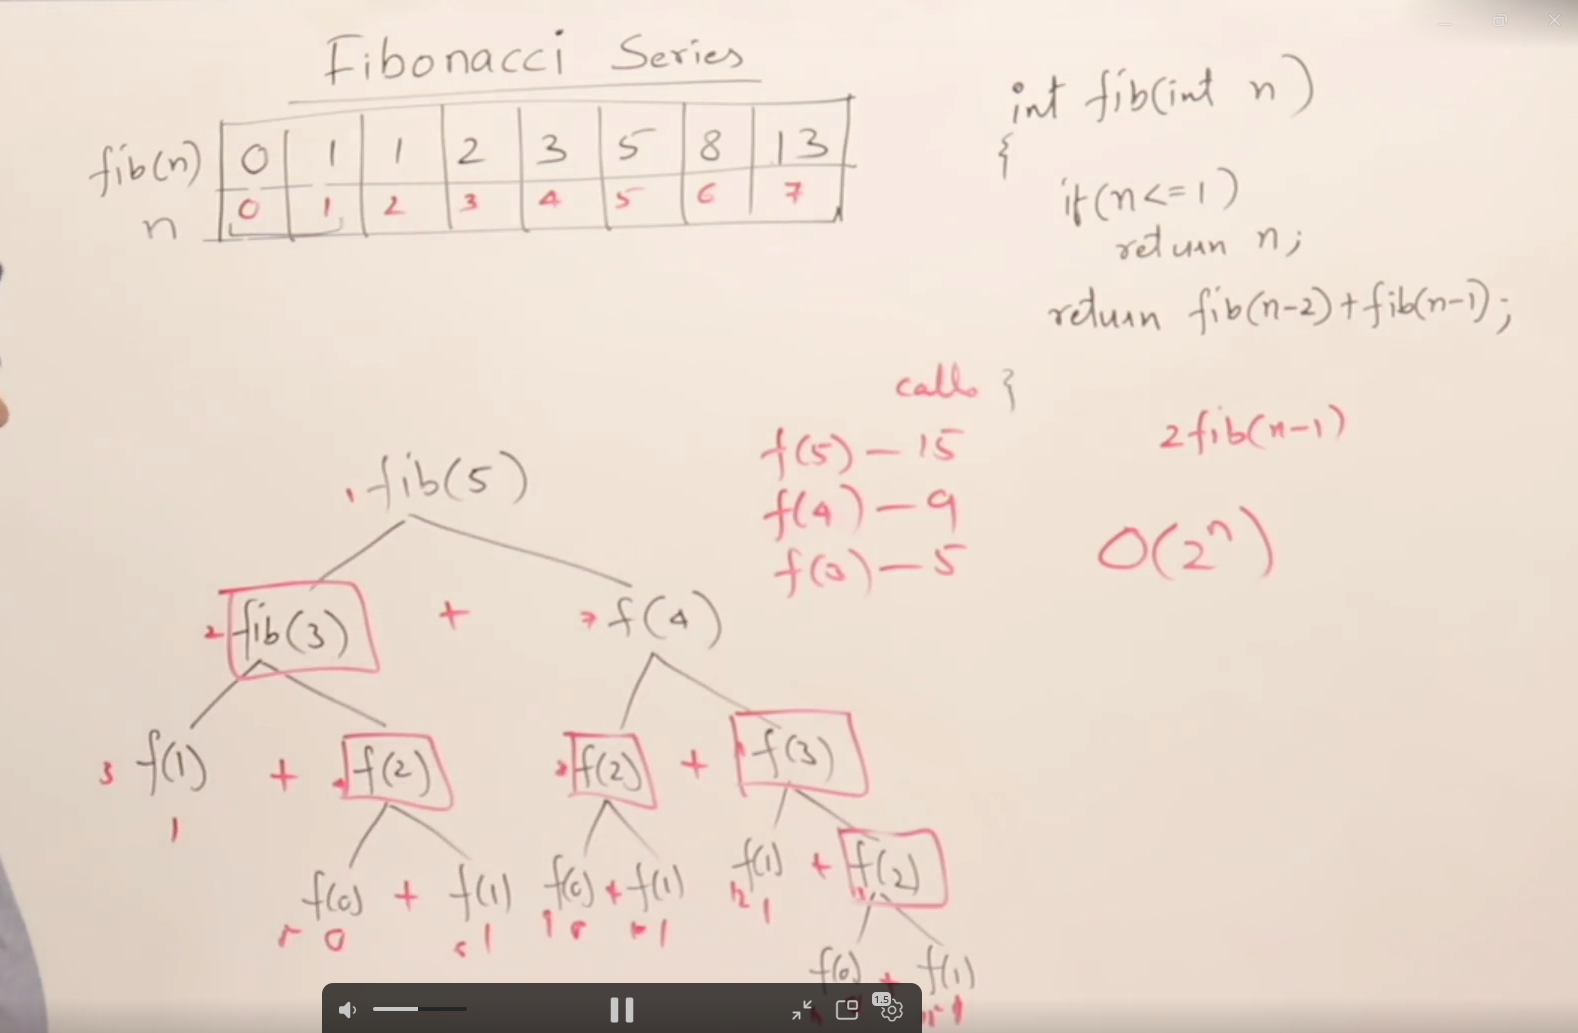 Fibonacci Series
fib(n) 0 1 1 2 3 5 8 13
n 0 1 2 3 4 5 6 7
int fib(int n)
{
if(n<=1)
return n;
return fib(n-2)+fib(n-1);
}
calls
f(5) – 15
f(4) – 9
f(3) – 5
2fib(n-1)
O(2ⁿ)
1 fib(5)
2 fib(3) + 7 f(4)
3 f(1) + f(2) f(2) + f(3)
1
f(0) + f(1) f(0) + f(1) f(1) + f(2)
0 1 1 1
f(0) + f(1)
1.5